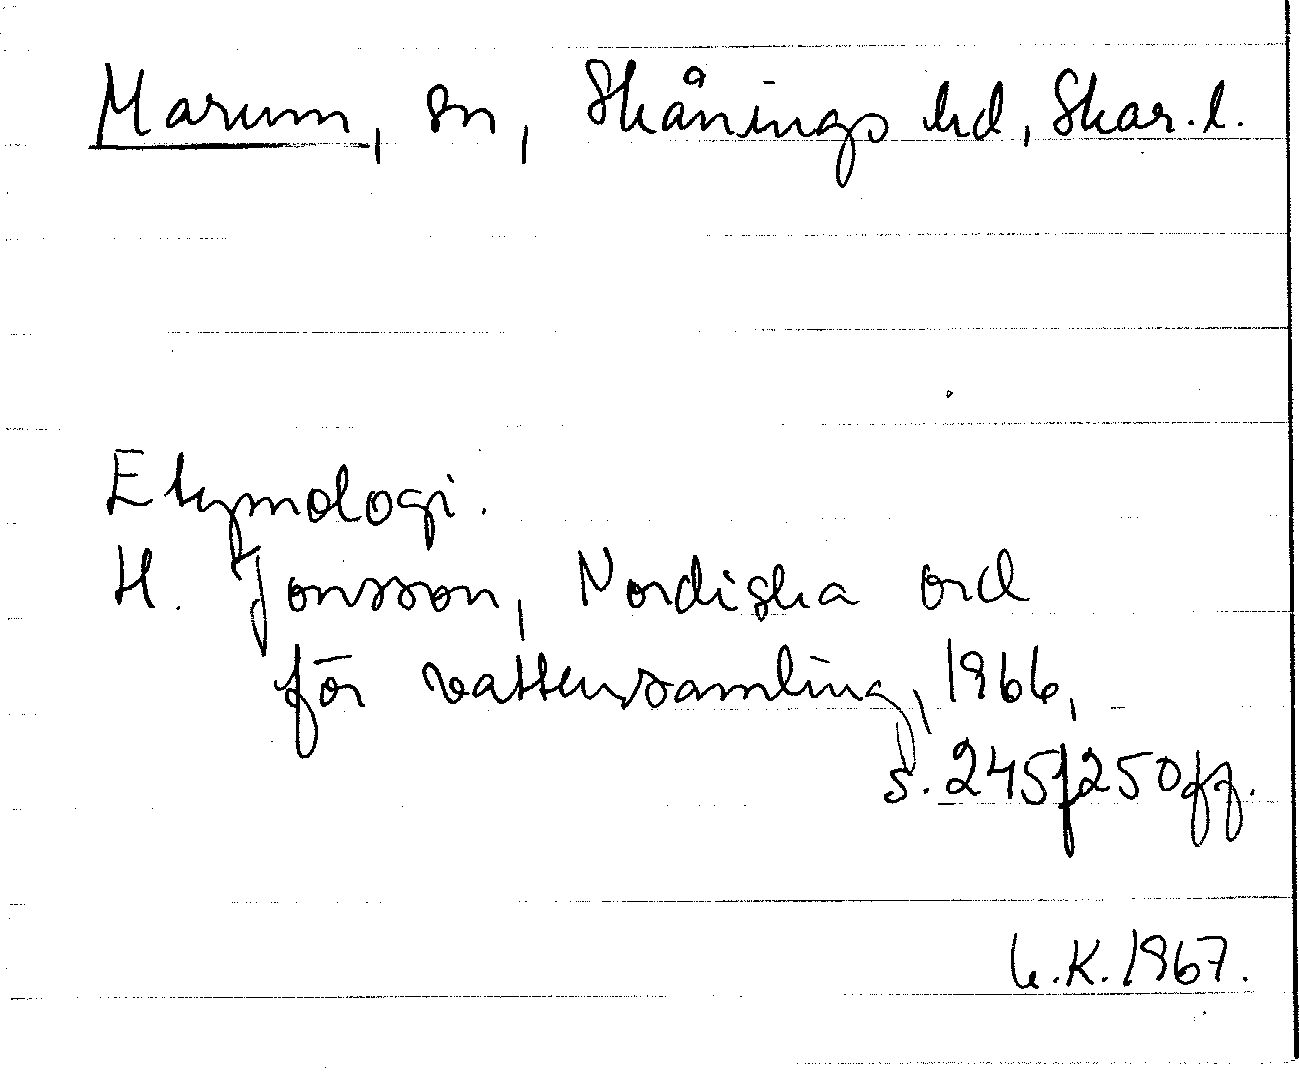 Marum, sn, Skånings hd, Skar. l.
Etymologi.
H. Jonsson, Nordiska ord
för vattensamling, 1966,
s. 245f, 250ff.
K. 1967.